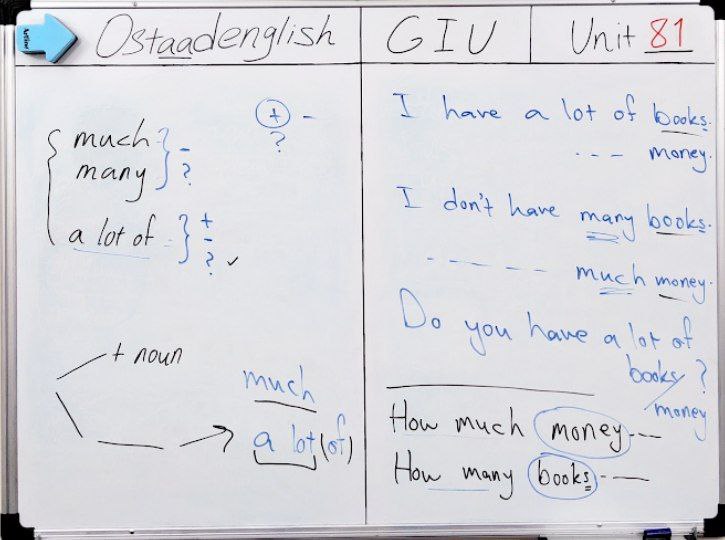 Ostaadenglish GIU Unit 81
+ -
?
much -
many ?
a lot of +
-
? ✓
+ noun
much
a lot (of)
I have a lot of books.
--- money.
I don't have many books.
----- much money.
Do you have a lot of
books / money ?
How much money ---
How many books ---